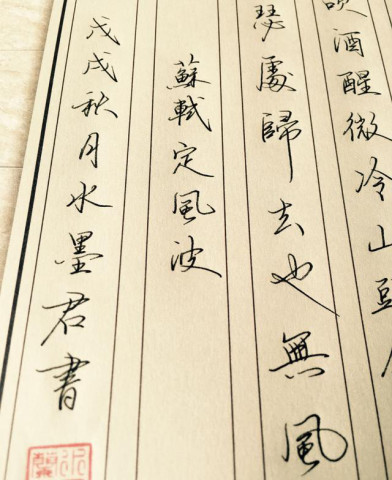 吹酒醒微冷山頭
瑟處歸去也無風
蘇軾定風波
戊戌秋月水墨君書